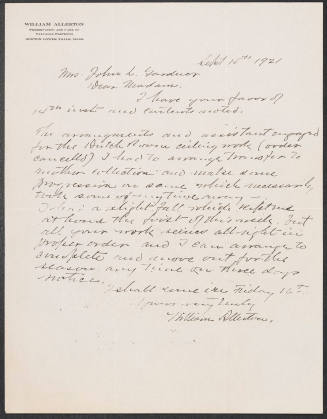 WILLIAM ALLERTON
PRESERVATION AND CARE OF
VALUABLE PAINTINGS
NEWTON LOWER FALLS, MASS.
Sept 15th 1921
Mrs. John L. Gardner
Dear Madam.
I have your favor of
14th inst and contents noted.
The arrangements and assistant engaged
for the Dutch Room ceiling work (order
cancelled) I had to arrange transfer to
another collection and make some
progression on same which necessarily
took some of my time away
I had a slight fall which kept me
at home the first of this week, but
all your work seems all right in
proper order and I can arrange to
complete and move out for the
season any time on three days
notice.
I shall come in Friday 16th
Yours very truly
William Allerton.